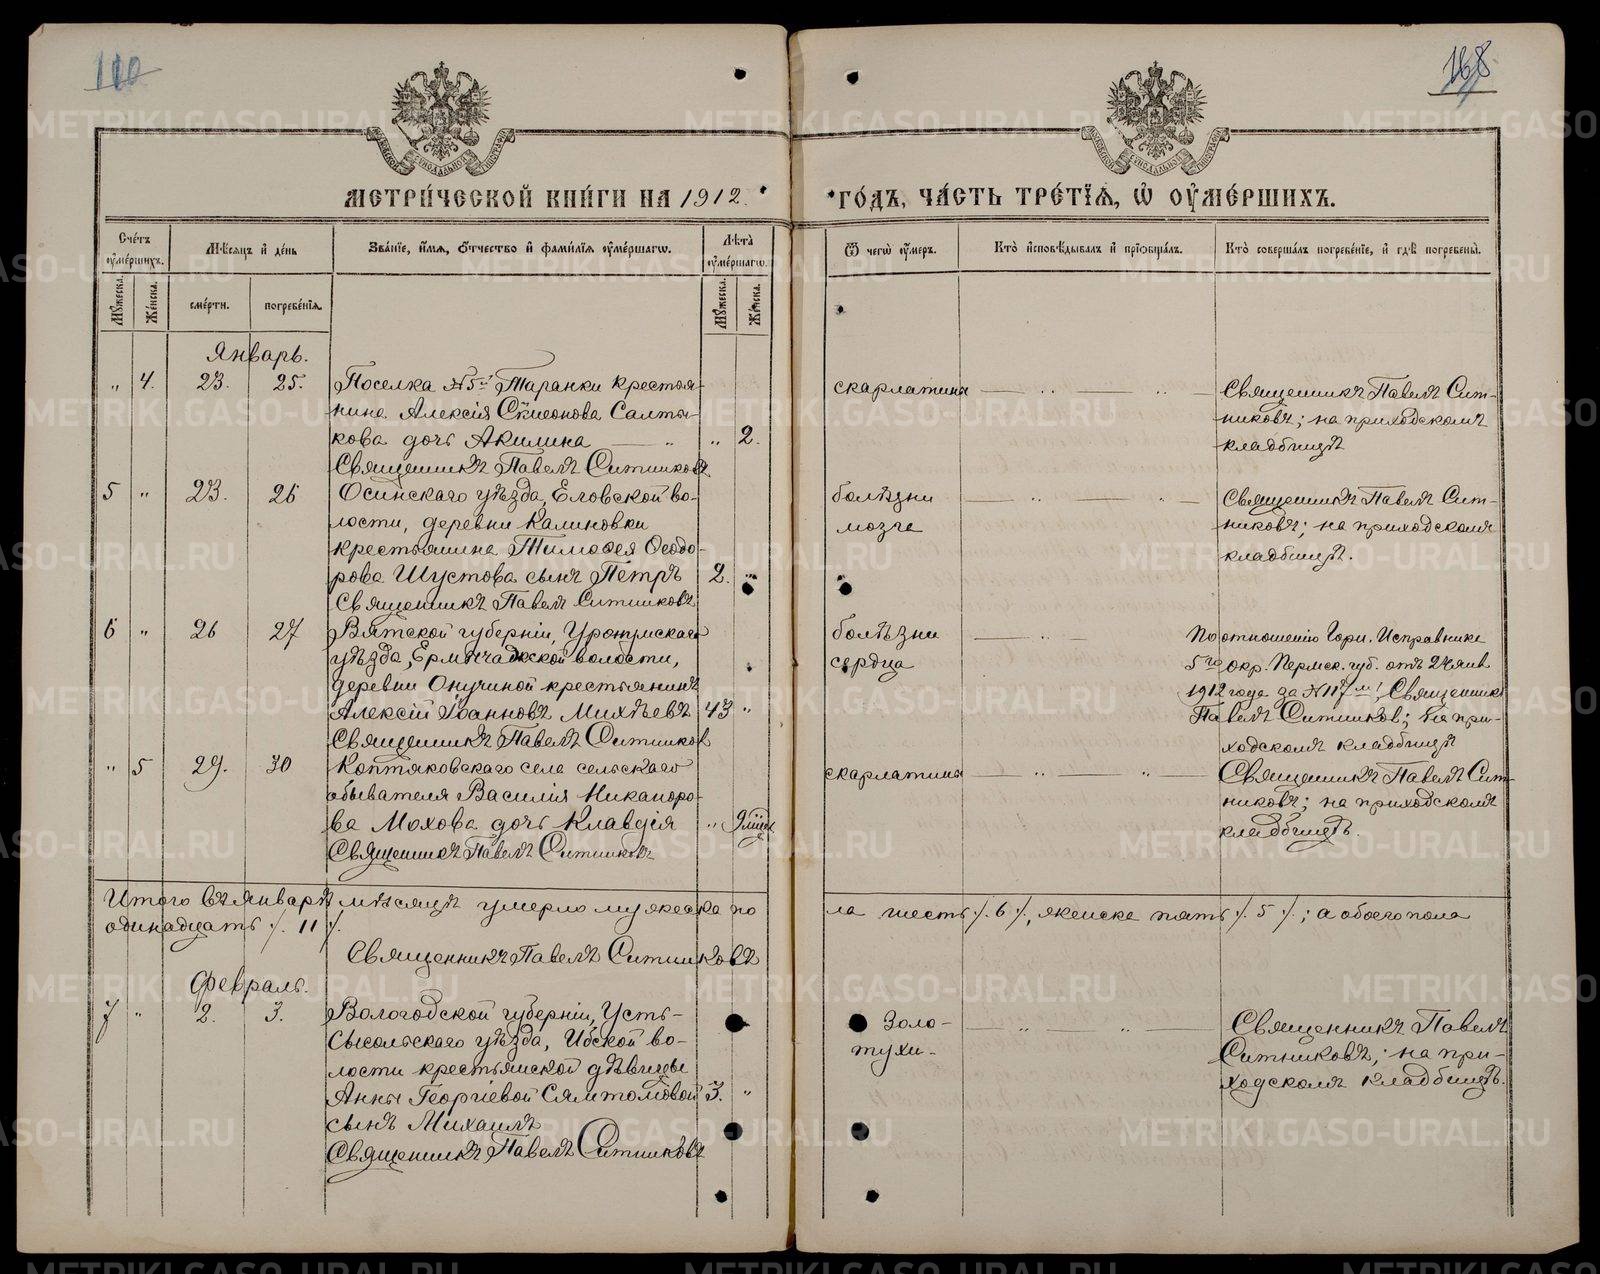 110
168
МЕТРИ́ЧЕСКОЙ КНИ́ГИ НА 1912
ГО́ДЪ, ЧА́СТЬ ТРЕ́ТІѦ, Ѡ҆ ОУ҆МЕ́РШИХЪ.
Сче́тъ оу҆ме́ршихъ.
Мѣ́сѧцъ и҆ де́нь
Зва́нїе, и҆́мѧ, ѻ҆́тчество и҆ фами́лїѧ оу҆ме́ршагѡ.
Лѣ́та оу҆ме́ршагѡ.
Ѿ чегѡ̀ оу҆́меръ.
Кто̀ и҆сповѣ́дывалъ и҆ прїѡбща́лъ.
Кто̀ соверша́лъ погребе́нїе, и҆ гдѣ̀ погребены̀.
Мꙋ́жеска.
Же́нска.
сме́рти.
погребе́нїѧ.
Мꙋ́жеска.
Же́нска.
Январь.
" 4. 23. 25. Поселка №5й Таранки крестья-
нина Алексія Сѵмеонова Салты-
кова дочь Акилина — " " 2.
Священникъ Павелъ Ситниковъ
скарлатина — " — " —
Священникъ Павелъ Сит-
никовъ; на приходскомъ
кладбищѣ
5 " 23. 26 Осинскаго уѣзда, Еловской во-
лости, деревни Калиновки
крестьянина Тимоѳея Ѳеодо-
рова Шустова сынъ Петръ 2. "
Священникъ Павелъ Ситниковъ
болѣзни — " — " —
мозга
Священникъ Павелъ Сит-
никовъ; на приходскомъ
кладбищѣ.
6 " 26 27 Вятской губерніи, Уржумскаго
уѣзда, волости,
деревни Онучиной крестьянинъ
Алексій Іоанновъ Михѣевъ 43 "
Священникъ Павелъ Ситников
болѣзни — " —
сердца
По отношенію Горн. Исправника
5го окр. Пермск. губ. отъ 24 янв
1912 года за №117м; Священникъ
Павелъ Ситников; на при-
ходскомъ кладбищѣ
" 5 29. 30 Коптяковскаго села сельскаго
обывателя Василія Никаноро-
ва Мохова дочь Клавдія " 9 мцев
Священникъ Павелъ Ситниковъ
скарлатина — " — " —
Священникъ Павелъ Сит-
никовъ; на приходскомъ
кладбищѣ.
Итого въ январѣ мѣсяцѣ умерло мужеска по
ла шесть /. 6 /., женска пять /. 5 /.; а обоего пола
одинадцать /. 11 /.
Священникъ Павелъ Ситниковъ
Февраль.
7 " 2. 3. Вологодской губерніи, Усть-
Сысольскаго уѣзда, Ибской во-
лости крестьянской дѣвицы
Анны Георгіевой 3. "
сынъ Михаилъ
Священникъ Павелъ Ситниковъ
Золо- — " — " —
тухи.
Священникъ Павелъ
Ситниковъ; на при-
ходскомъ кладбищѣ.
METRIKI.GASO-URAL.RU